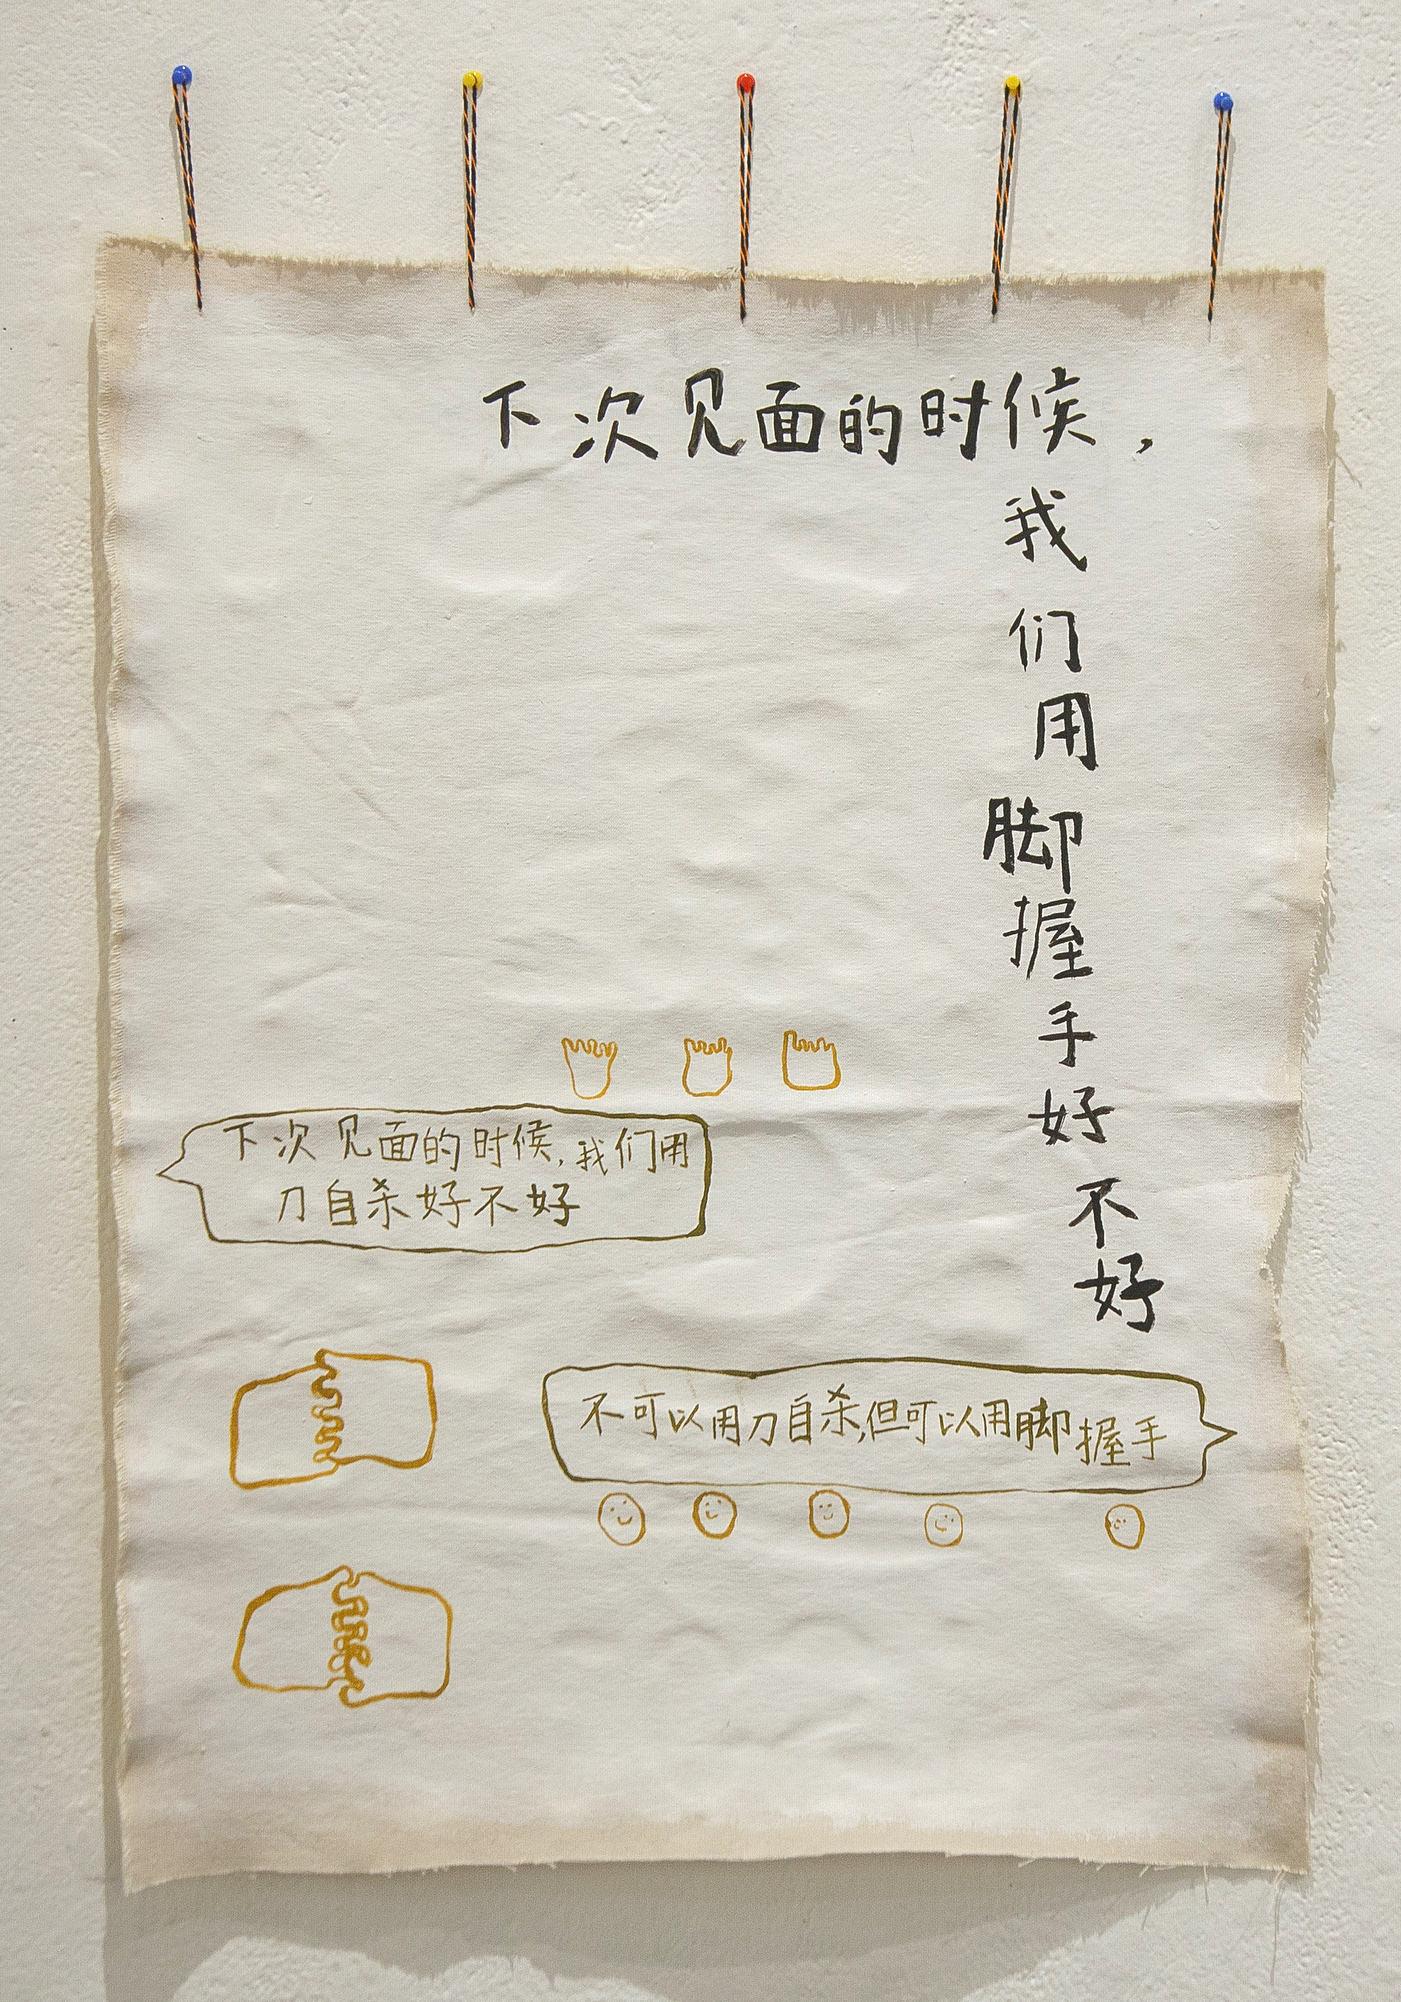 下次见面的时候，
我们用脚握手好不好
下次见面的时候,我们用
刀自杀好不好
不可以用刀自杀,但可以用脚握手